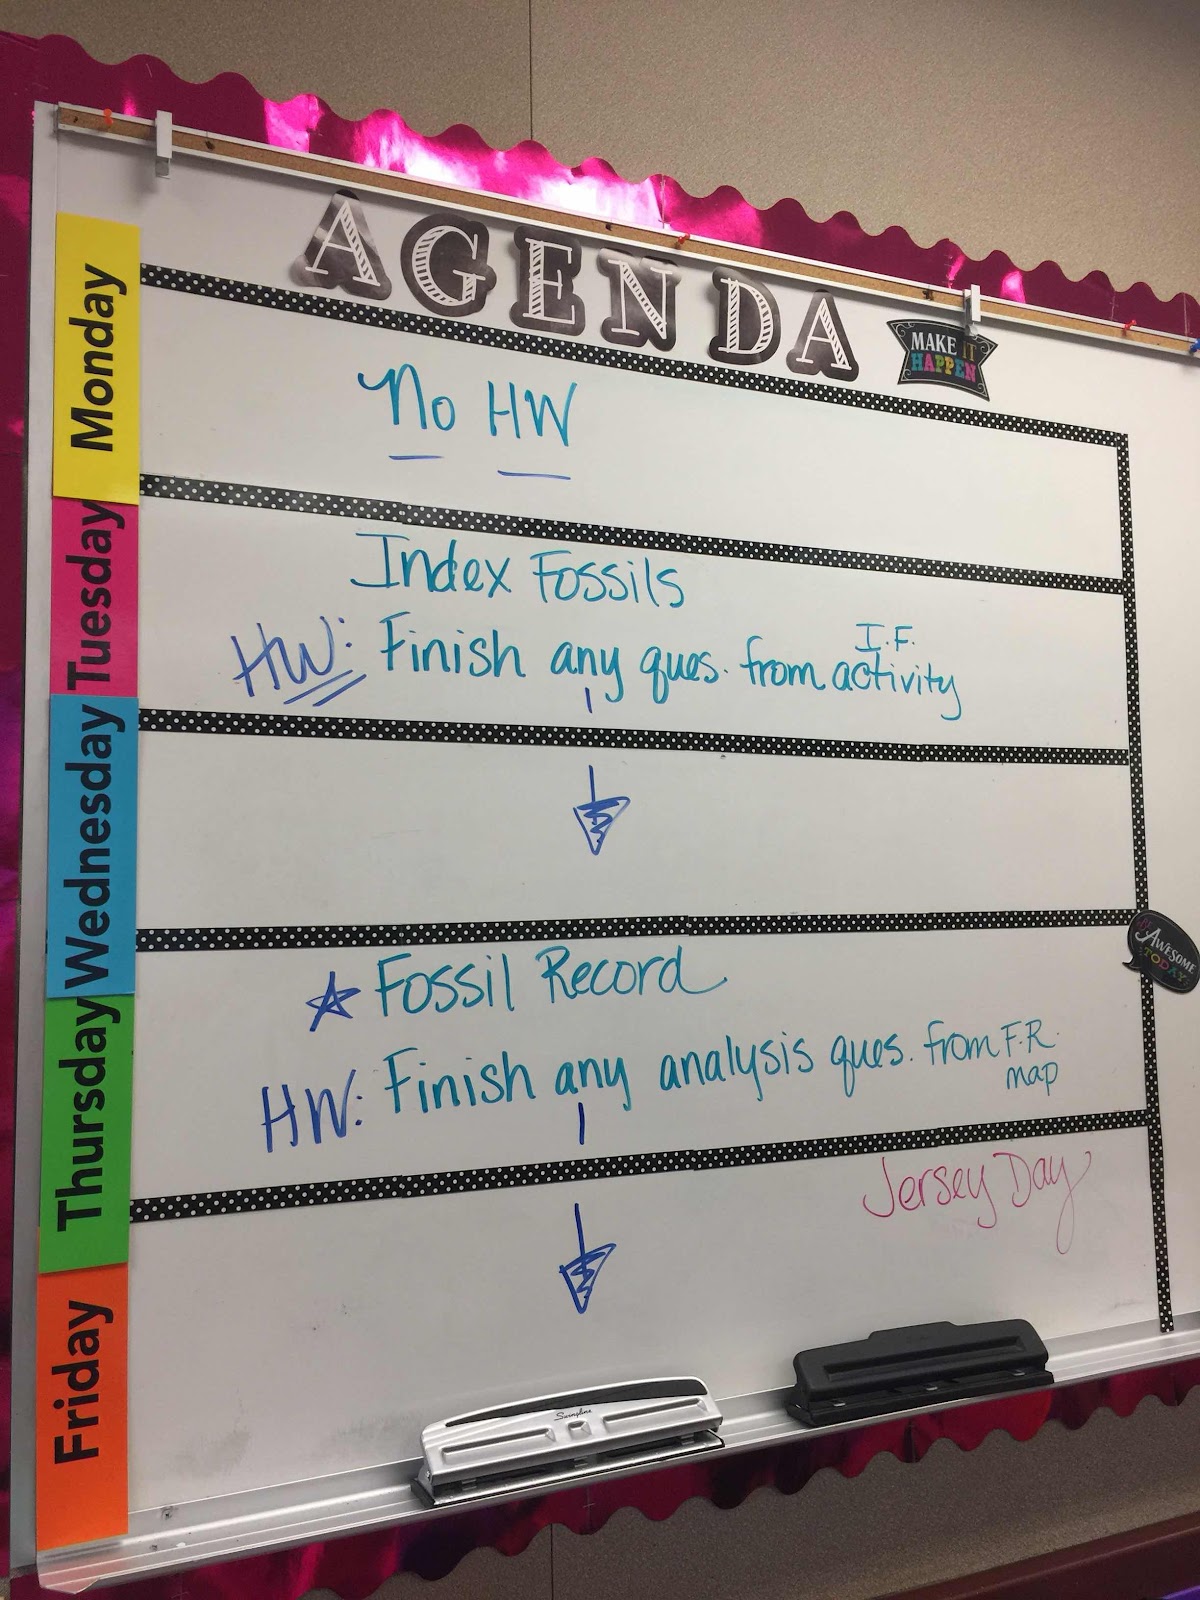 AGENDA
MAKE IT
HAPPEN
Monday
No HW
Tuesday
Index Fossils
HW: Finish any ques. from I.F. activity
Wednesday
Thursday
Fossil Record
HW: Finish any analysis ques. from F.R.
map
BE AWESOME
TODAY
Friday
Jersey Day
Swingline